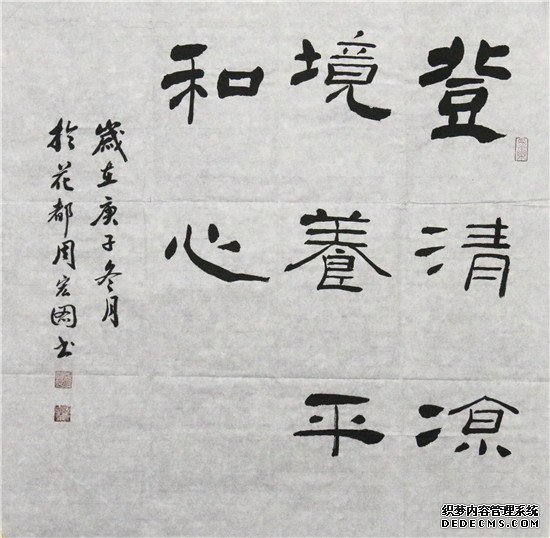 登清凉
境養平
和心
歲在庚子冬月
於花都周宏图书
织梦内容管理系统
DEDECMS.COM